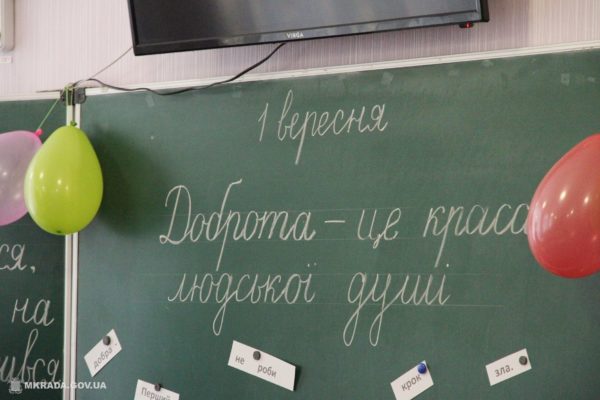 VIRGA
1 вересня
Доброта – це краса
людської душі
ся,
на
ився
добра.
не роби
крок
зла.
Перший
MKRADA.GOV.UA